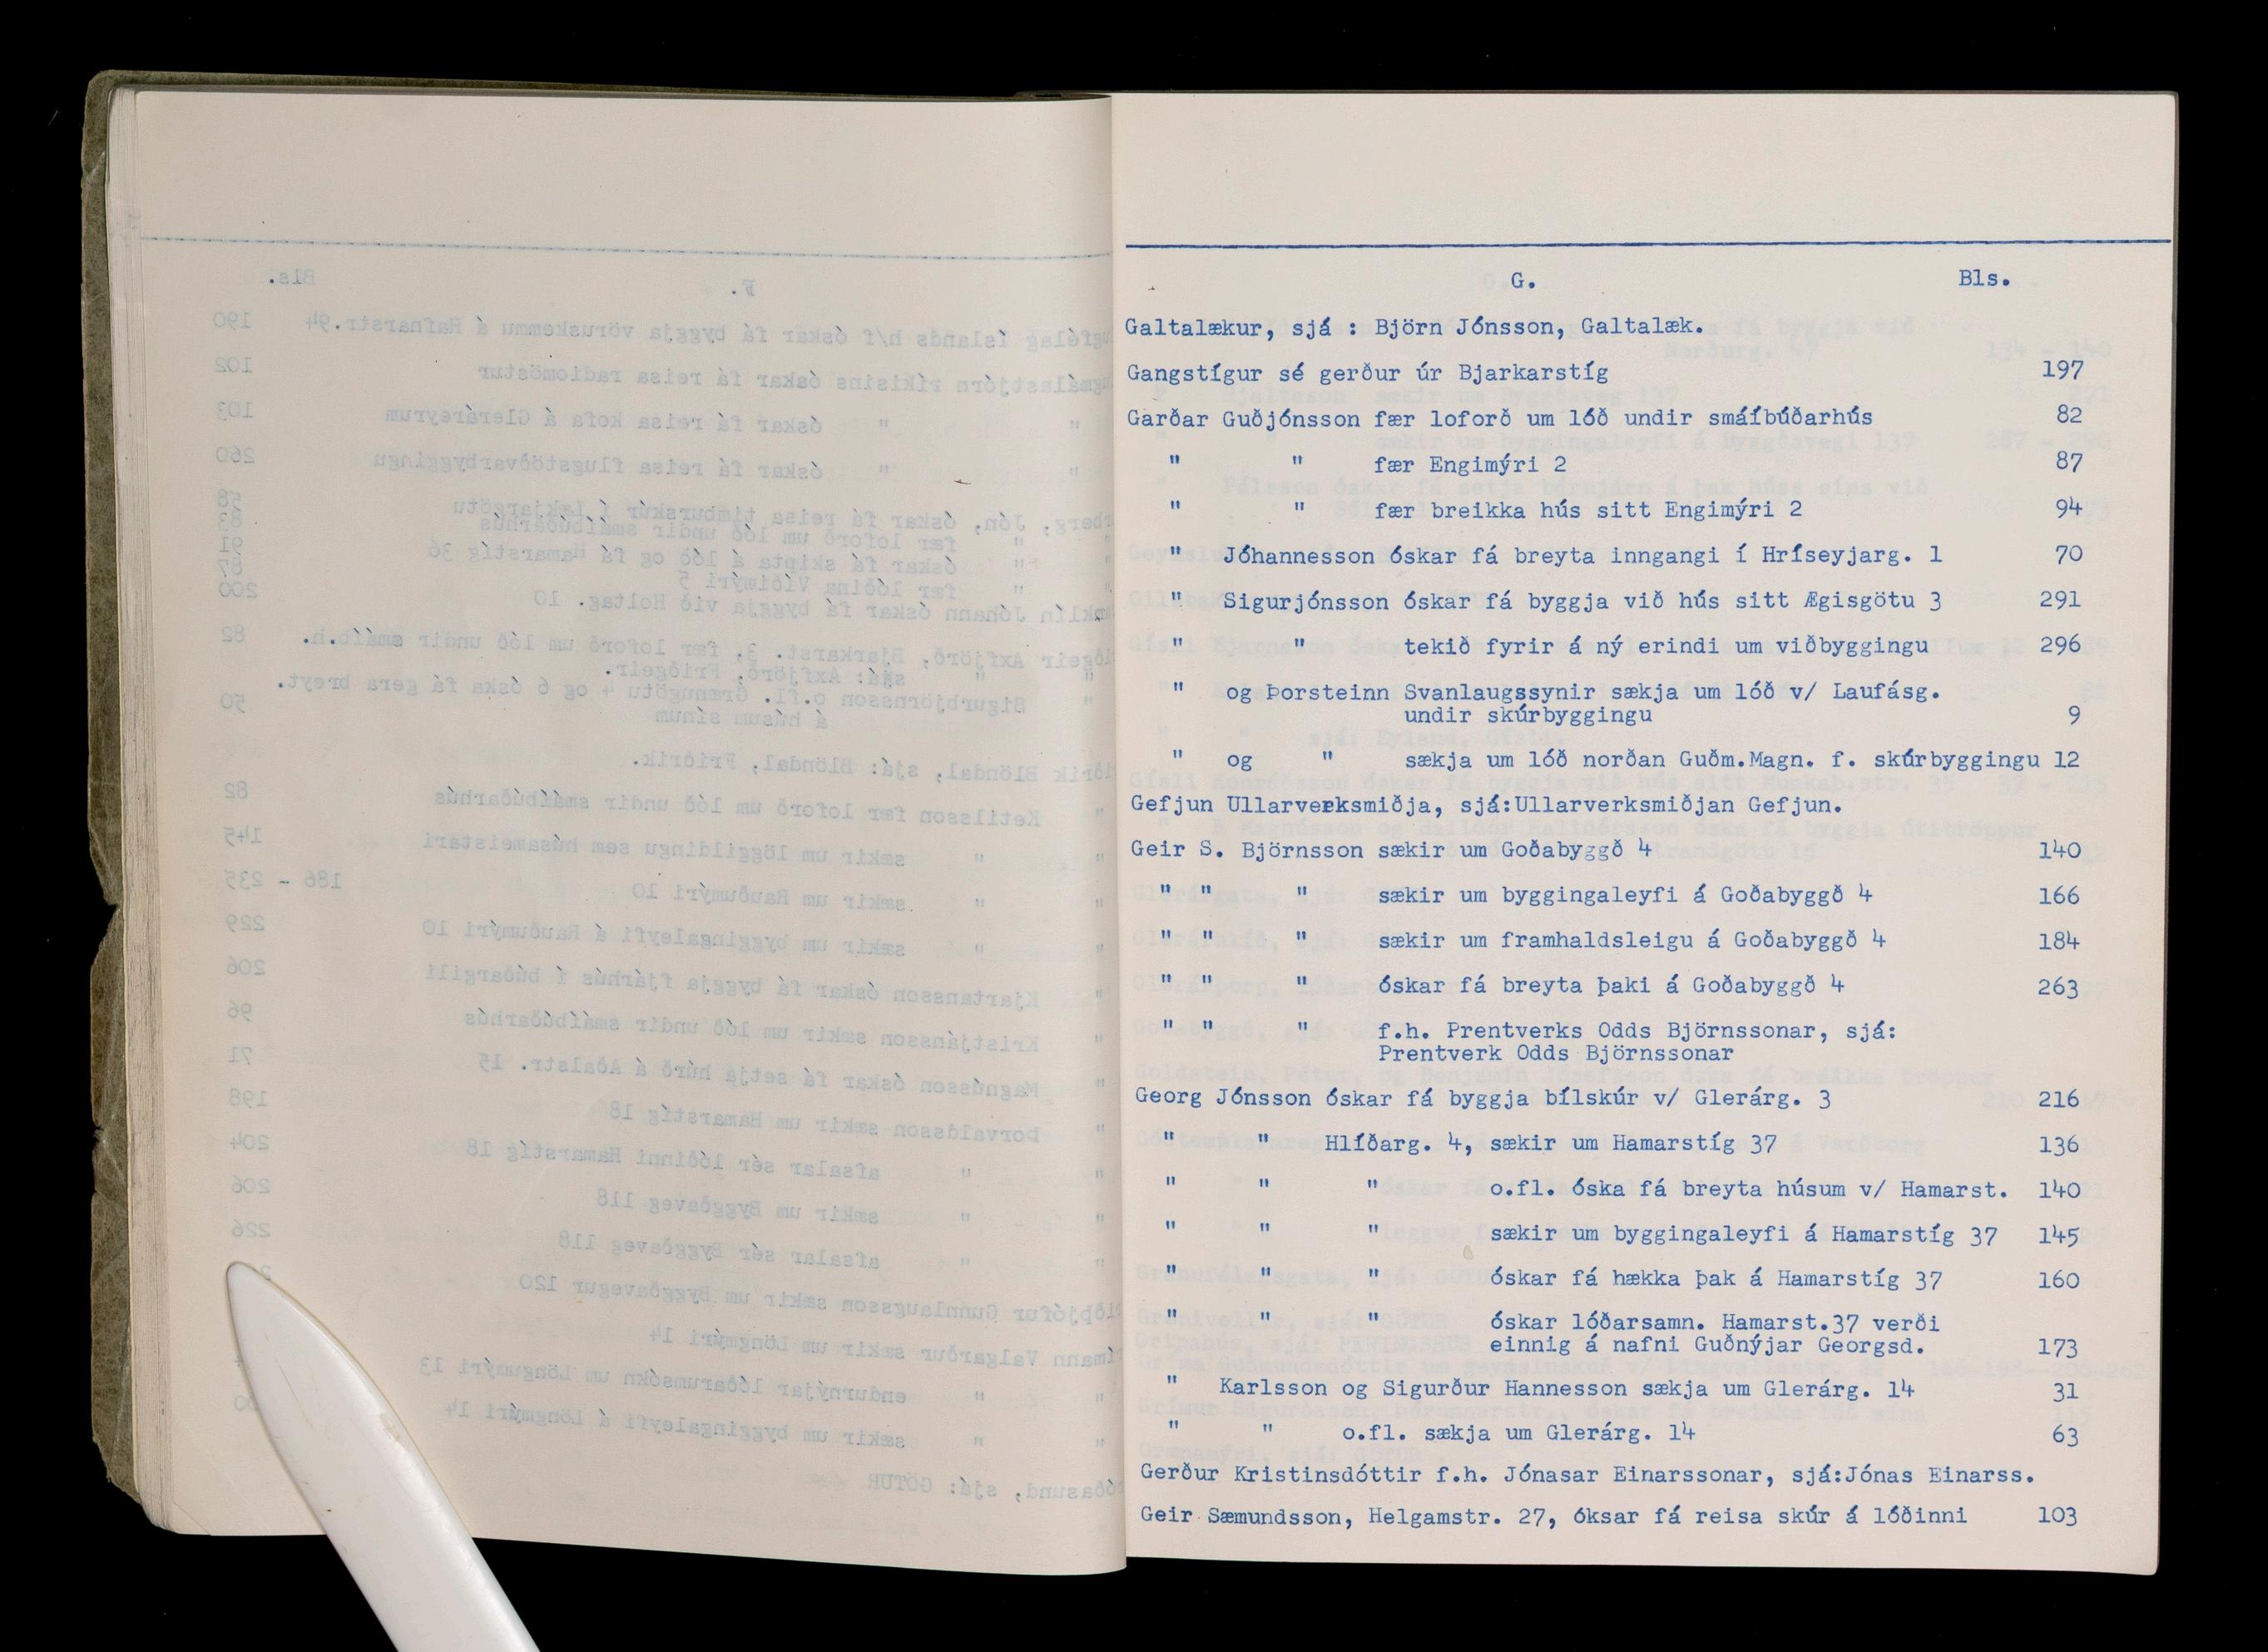 G. Bls.
Galtalækur, sjá : Björn Jónsson, Galtalæk.
Gangstígur sé gerður úr Bjarkarstíg 197
Garðar Guðjónsson fær loforð um lóð undir smáíbúðarhús 82
" " fær Engimýri 2 87
" " fær breikka hús sitt Engimýri 2 94
" Jóhannesson óskar fá breyta inngangi í Hríseyjarg. 1 70
" Sigurjónsson óskar fá byggja við hús sitt Ægisgötu 3 291
" " tekið fyrir á ný erindi um viðbyggingu 296
" og Þorsteinn Svanlaugssynir sækja um lóð v/ Laufásg.
undir skúrbyggingu 9
" og " sækja um lóð norðan Guðm.Magn. f. skúrbyggingu 12
Gefjun Ullarverksmiðja, sjá:Ullarverksmiðjan Gefjun.
Geir S. Björnsson sækir um Goðabyggð 4 140
" " " sækir um byggingaleyfi á Goðabyggð 4 166
" " " sækir um framhaldsleigu á Goðabyggð 4 184
" " " óskar fá breyta þaki á Goðabyggð 4 263
" " " f.h. Prentverks Odds Björnssonar, sjá:
Prentverk Odds Björnssonar
Georg Jónsson óskar fá byggja bílskúr v/ Glerárg. 3 216
" " Hlíðarg. 4, sækir um Hamarstíg 37 136
" " " o.fl. óska fá breyta húsum v/ Hamarst. 140
" " " sækir um byggingaleyfi á Hamarstíg 37 145
" " " óskar fá hækka þak á Hamarstíg 37 160
" " " óskar lóðarsamn. Hamarst.37 verði
einnig á nafni Guðnýjar Georgsd. 173
" Karlsson og Sigurður Hannesson sækja um Glerárg. 14 31
" " o.fl. sækja um Glerárg. 14 63
Gerður Kristinsdóttir f.h. Jónasar Einarssonar, sjá:Jónas Einarss.
Geir Sæmundsson, Helgamstr. 27, óksar fá reisa skúr á lóðinni 103